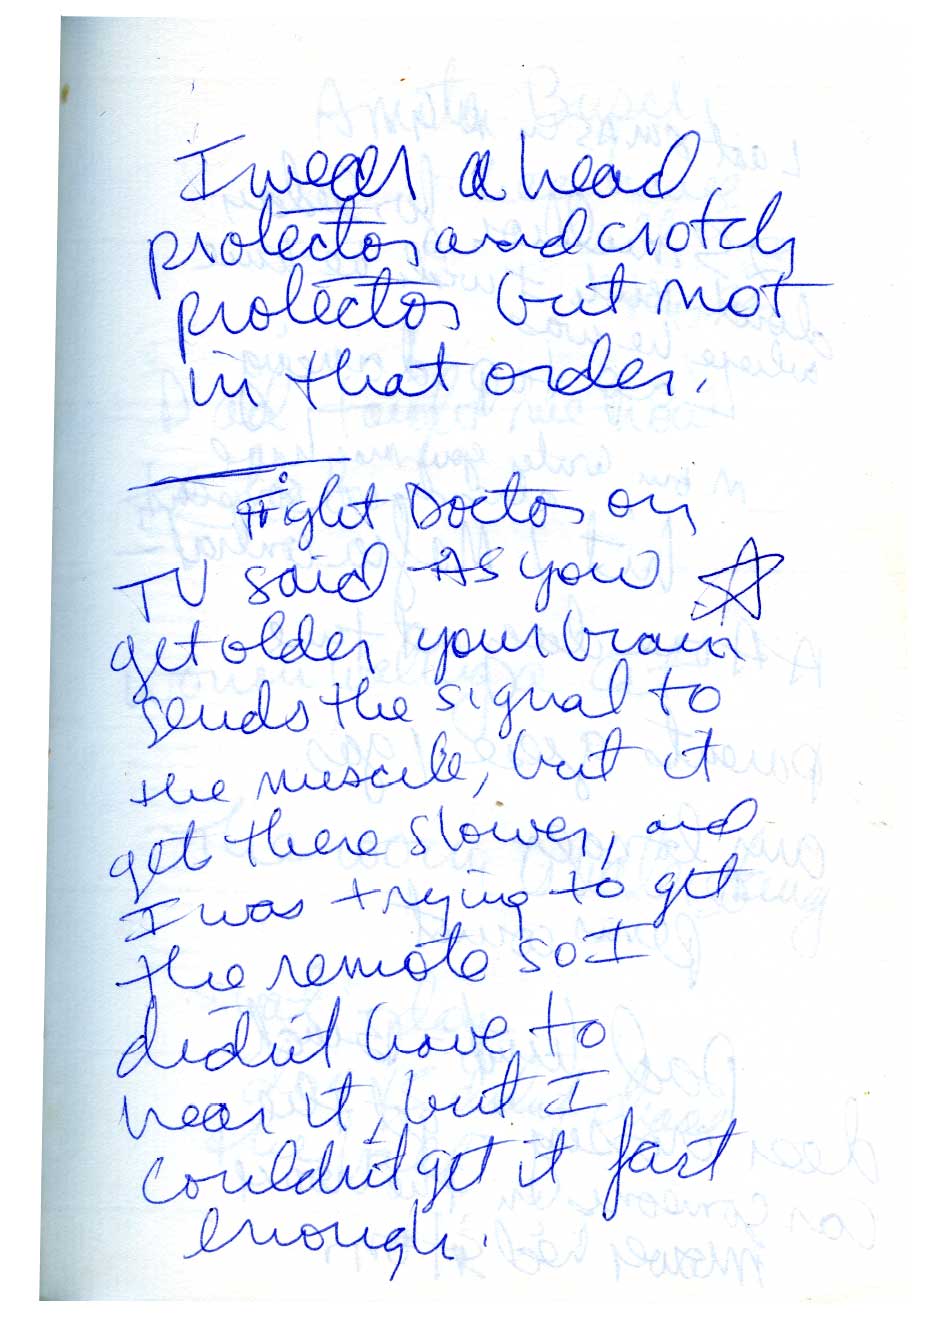 I wear a head
protector and crotch
protector but not
in that order.
Fight Doctor on
TV said As you
get older your brain
sends the signal to
the muscle, but it
gets there slower, and
I was trying to get
the remote so I
didn't have to
hear it, but I
couldn't get it fast
enough.